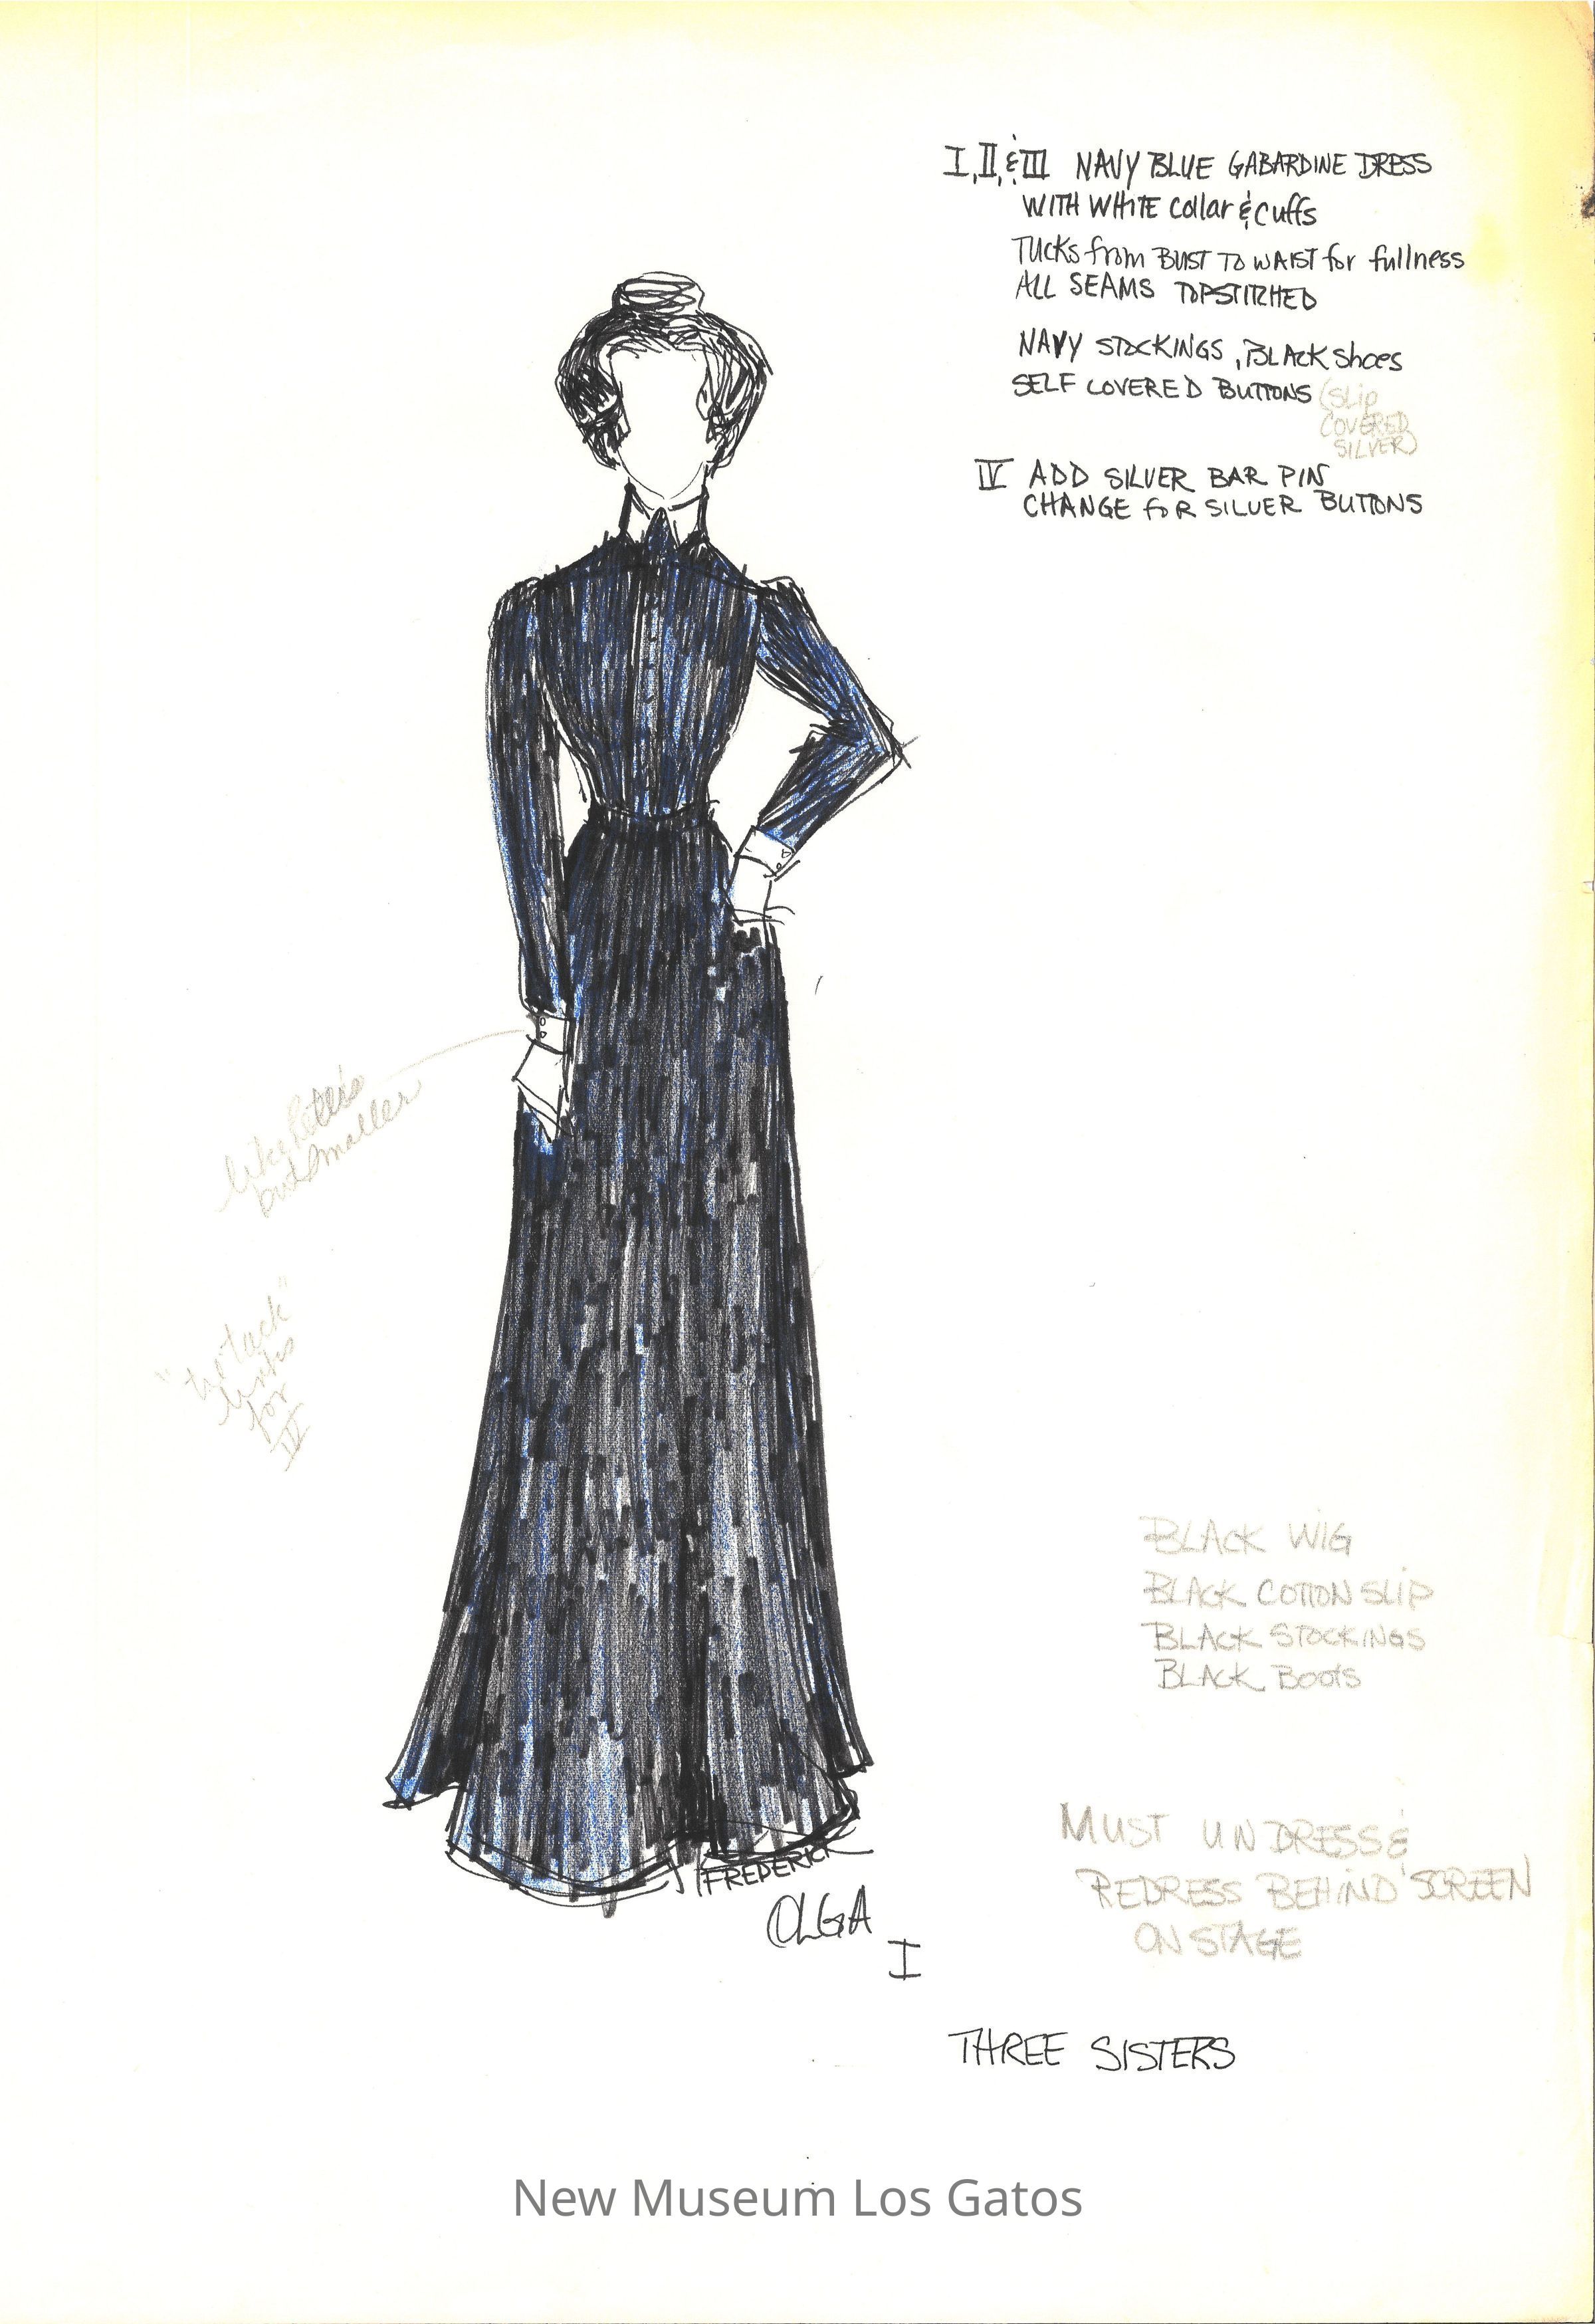 I, II, & III NAVY BLUE GABARDINE DRESS
WITH WHITE Collar & Cuffs
TUCKS from BUST TO WAIST for fullness
ALL SEAMS TOPSTITCHED
NAVY STOCKINGS, BLACK Shoes
SELF COVERED BUTTONS (Slip
COVERED
SILVER)
IV ADD SILVER BAR PIN
CHANGE FOR SILVER BUTTONS
like
but smaller
"tie tack"
links
for
IV
BLACK WIG
BLACK COTTON SLIP
BLACK STOCKINGS
BLACK BOOTS
MUST UNDRESS &
REDRESS BEHIND SCREEN
ON STAGE
FREDERICK
OLGA
I
THREE SISTERS
New Museum Los Gatos